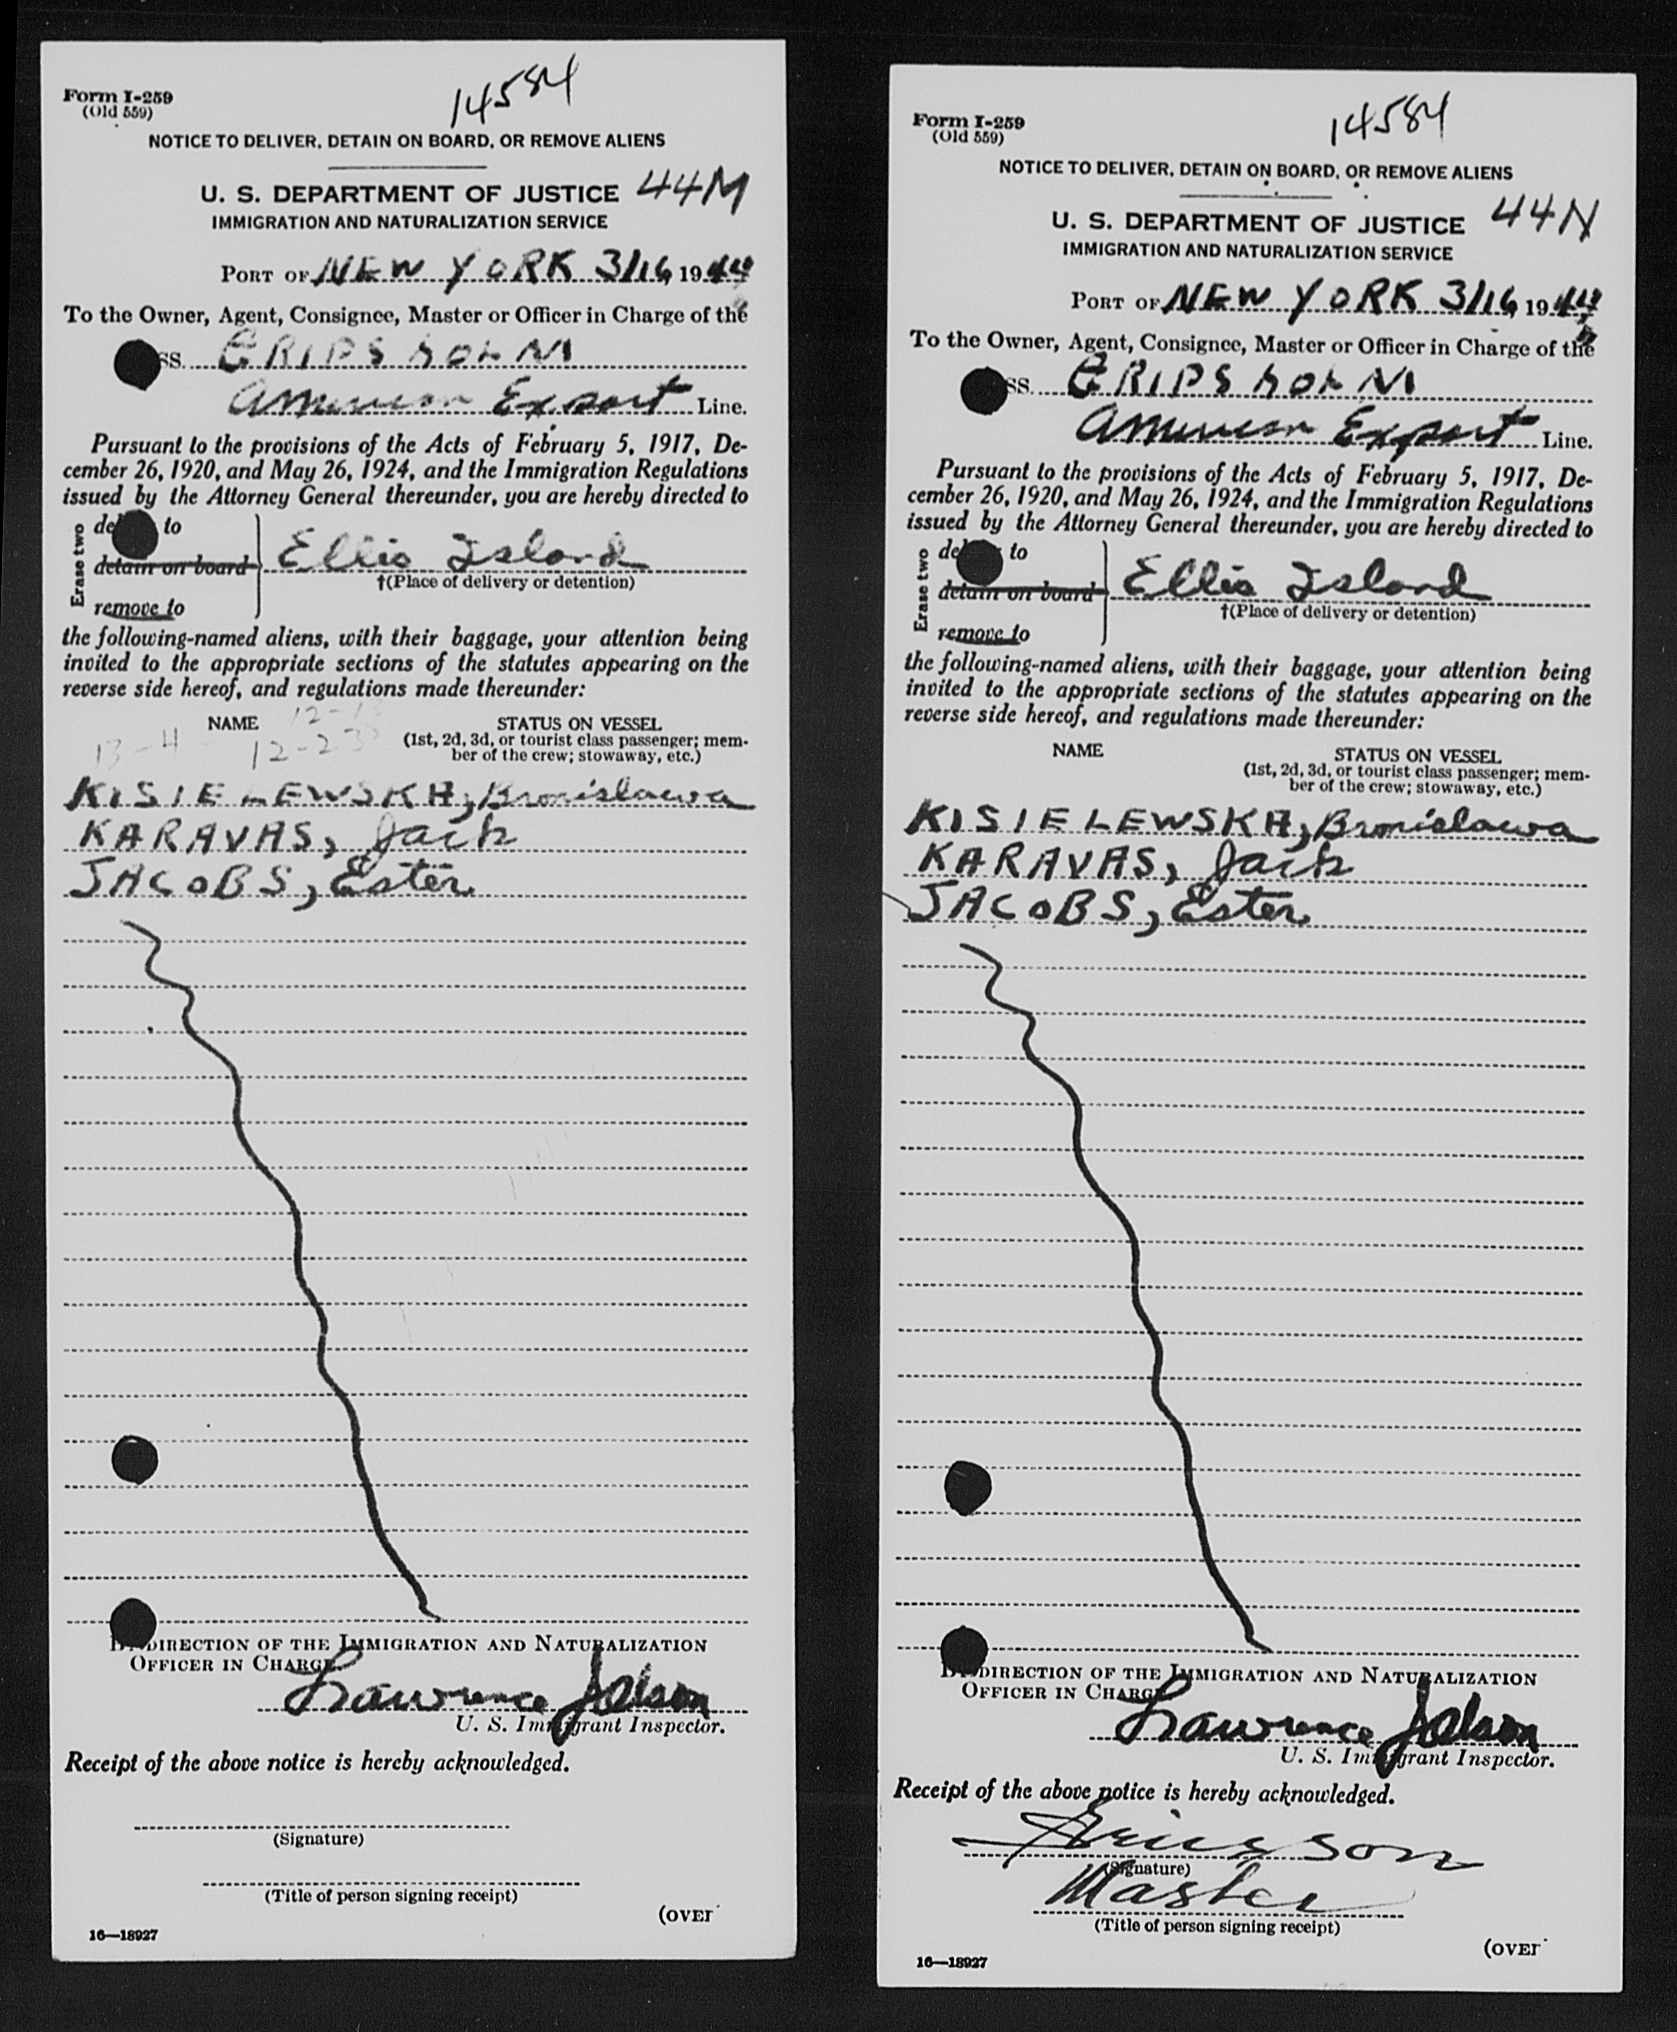 14584
Form I-259
(Old 559)
NOTICE TO DELIVER, DETAIN ON BOARD, OR REMOVE ALIENS
U. S. DEPARTMENT OF JUSTICE 44M
IMMIGRATION AND NATURALIZATION SERVICE
PORT OF NEW YORK 3/16, 1944
To the Owner, Agent, Consignee, Master or Officer in Charge of the
SS. GRIPSHOLM
American Export Line.
Pursuant to the provisions of the Acts of February 5, 1917, De-
cember 26, 1920, and May 26, 1924, and the Immigration Regulations
issued by the Attorney General thereunder, you are hereby directed to
Erase two
to
detain on board
remove to
Ellis Island
†(Place of delivery or detention)
the following-named aliens, with their baggage, your attention being
invited to the appropriate sections of the statutes appearing on the
reverse side hereof, and regulations made thereunder:
NAME
13-4
STATUS ON VESSEL
(1st, 2d, 3d, or tourist class passenger; mem-
ber of the crew; stowaway, etc.)
KISIELEWSKA, Bronislawa
KARAVAS, Jack
JACOBS, Ester
DIRECTION OF THE IMMIGRATION AND NATURALIZATION
OFFICER IN CHARGE
Lawrence
U. S. Immigrant Inspector.
Receipt of the above notice is hereby acknowledged.
(Signature)
(Title of person signing receipt)
(OVER
16—18927
14584
Form I-259
(Old 559)
NOTICE TO DELIVER, DETAIN ON BOARD, OR REMOVE ALIENS
U. S. DEPARTMENT OF JUSTICE 44N
IMMIGRATION AND NATURALIZATION SERVICE
PORT OF NEW YORK 3/16, 1944
To the Owner, Agent, Consignee, Master or Officer in Charge of the
SS. GRIPSHOLM
American Export Line.
Pursuant to the provisions of the Acts of February 5, 1917, De-
cember 26, 1920, and May 26, 1924, and the Immigration Regulations
issued by the Attorney General thereunder, you are hereby directed to
Erase two
to
detain on board
remove to
Ellis Island
†(Place of delivery or detention)
the following-named aliens, with their baggage, your attention being
invited to the appropriate sections of the statutes appearing on the
reverse side hereof, and regulations made thereunder:
NAME
STATUS ON VESSEL
(1st, 2d, 3d, or tourist class passenger; mem-
ber of the crew; stowaway, etc.)
KISIELEWSKA, Bronislawa
KARAVAS, Jack
JACOBS, Ester
DIRECTION OF THE IMMIGRATION AND NATURALIZATION
OFFICER IN CHARGE
Lawrence
U. S. Immigrant Inspector.
Receipt of the above notice is hereby acknowledged.
Ericsson
(Signature)
Master
(Title of person signing receipt)
(OVER
16—18927